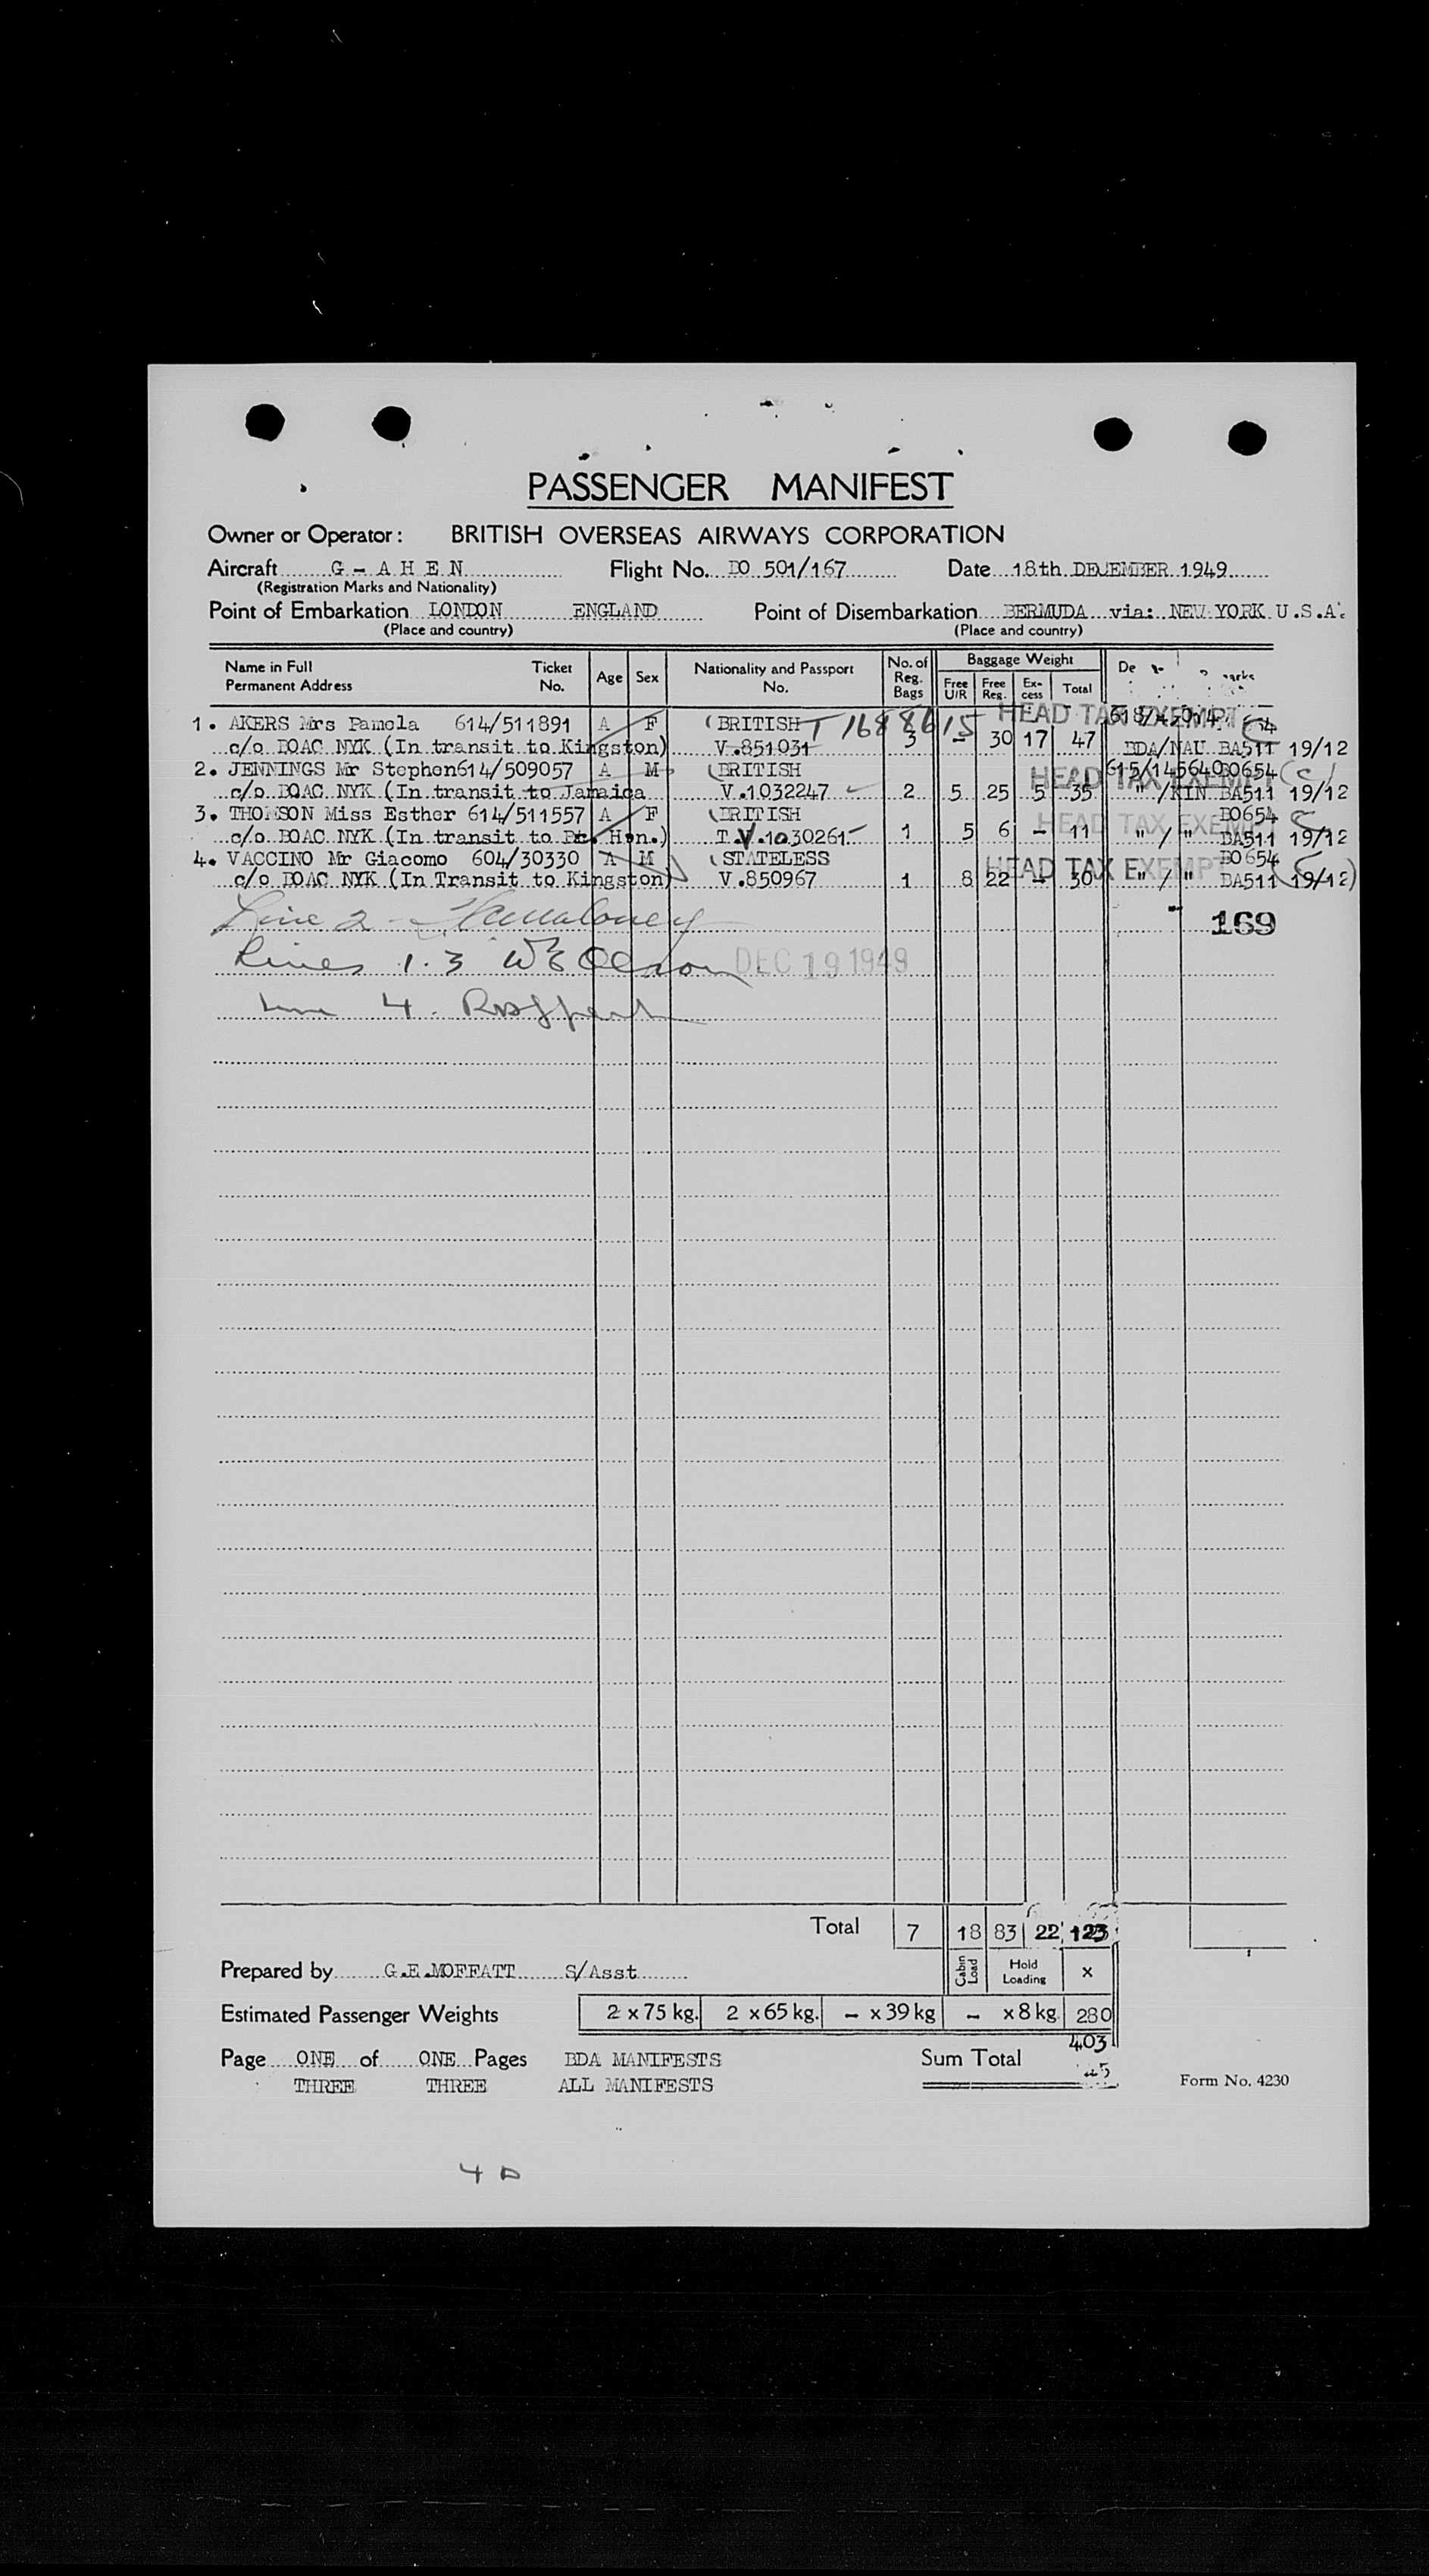 PASSENGER MANIFEST
Owner or Operator: BRITISH OVERSEAS AIRWAYS CORPORATION
Aircraft G - A H E N Flight No. BO 501/167 Date 18th DECEMBER 1949
(Registration Marks and Nationality)
Point of Embarkation LONDON ENGLAND Point of Disembarkation BERMUDA via: NEW YORK U.S.A.
(Place and country) (Place and country)
Name in Full Ticket Age Sex Nationality and Passport No. of Baggage Weight
Permanent Address No. No. Reg. Bags Free U/R Free Reg. Ex-cess Total
1. AKERS Mrs Pamela 614/511891 A F (BRITISH T 1688615 HEAD TAX EXEMPT
c/o BOAC NYK (In transit to Kingston) V.851031 3 - 30 17 47 BDA/NAU BA511 19/12
2. JENNINGS Mr Stephen 614/509057 A M (BRITISH HEAD TAX EXEMPT 615/145640 BO654
c/o BOAC NYK (In transit to Jamaica V.1032247 2 5 25 5 35 " /KIN BA511 19/12
3. THOMSON Miss Esther 614/511557 A F (BRITISH HEAD TAX EXEMPT BO654
c/o BOAC NYK (In transit to Hon.) T.V.1030261 1 5 6 - 11 " / " BA511 19/12
4. VACCINO Mr Giacomo 604/30330 A M (STATELESS HEAD TAX EXEMPT BO654
c/o BOAC NYK (In Transit to Kingston) V.850967 1 8 22 - 30 " / " BA511 19/12)
Line 2 - 169
Lines 1.3 DEC 19 1949
Line 4.
Total 7 18 83 22 123
Prepared by G.E.MOFFATT S/Asst Cabin Load Hold Loading x
Estimated Passenger Weights 2 x 75 kg. 2 x 65 kg. - x 39 kg - x 8 kg. 280
403
Page ONE of ONE Pages BDA MANIFESTS Sum Total
THREE THREE ALL MANIFESTS Form No. 4230